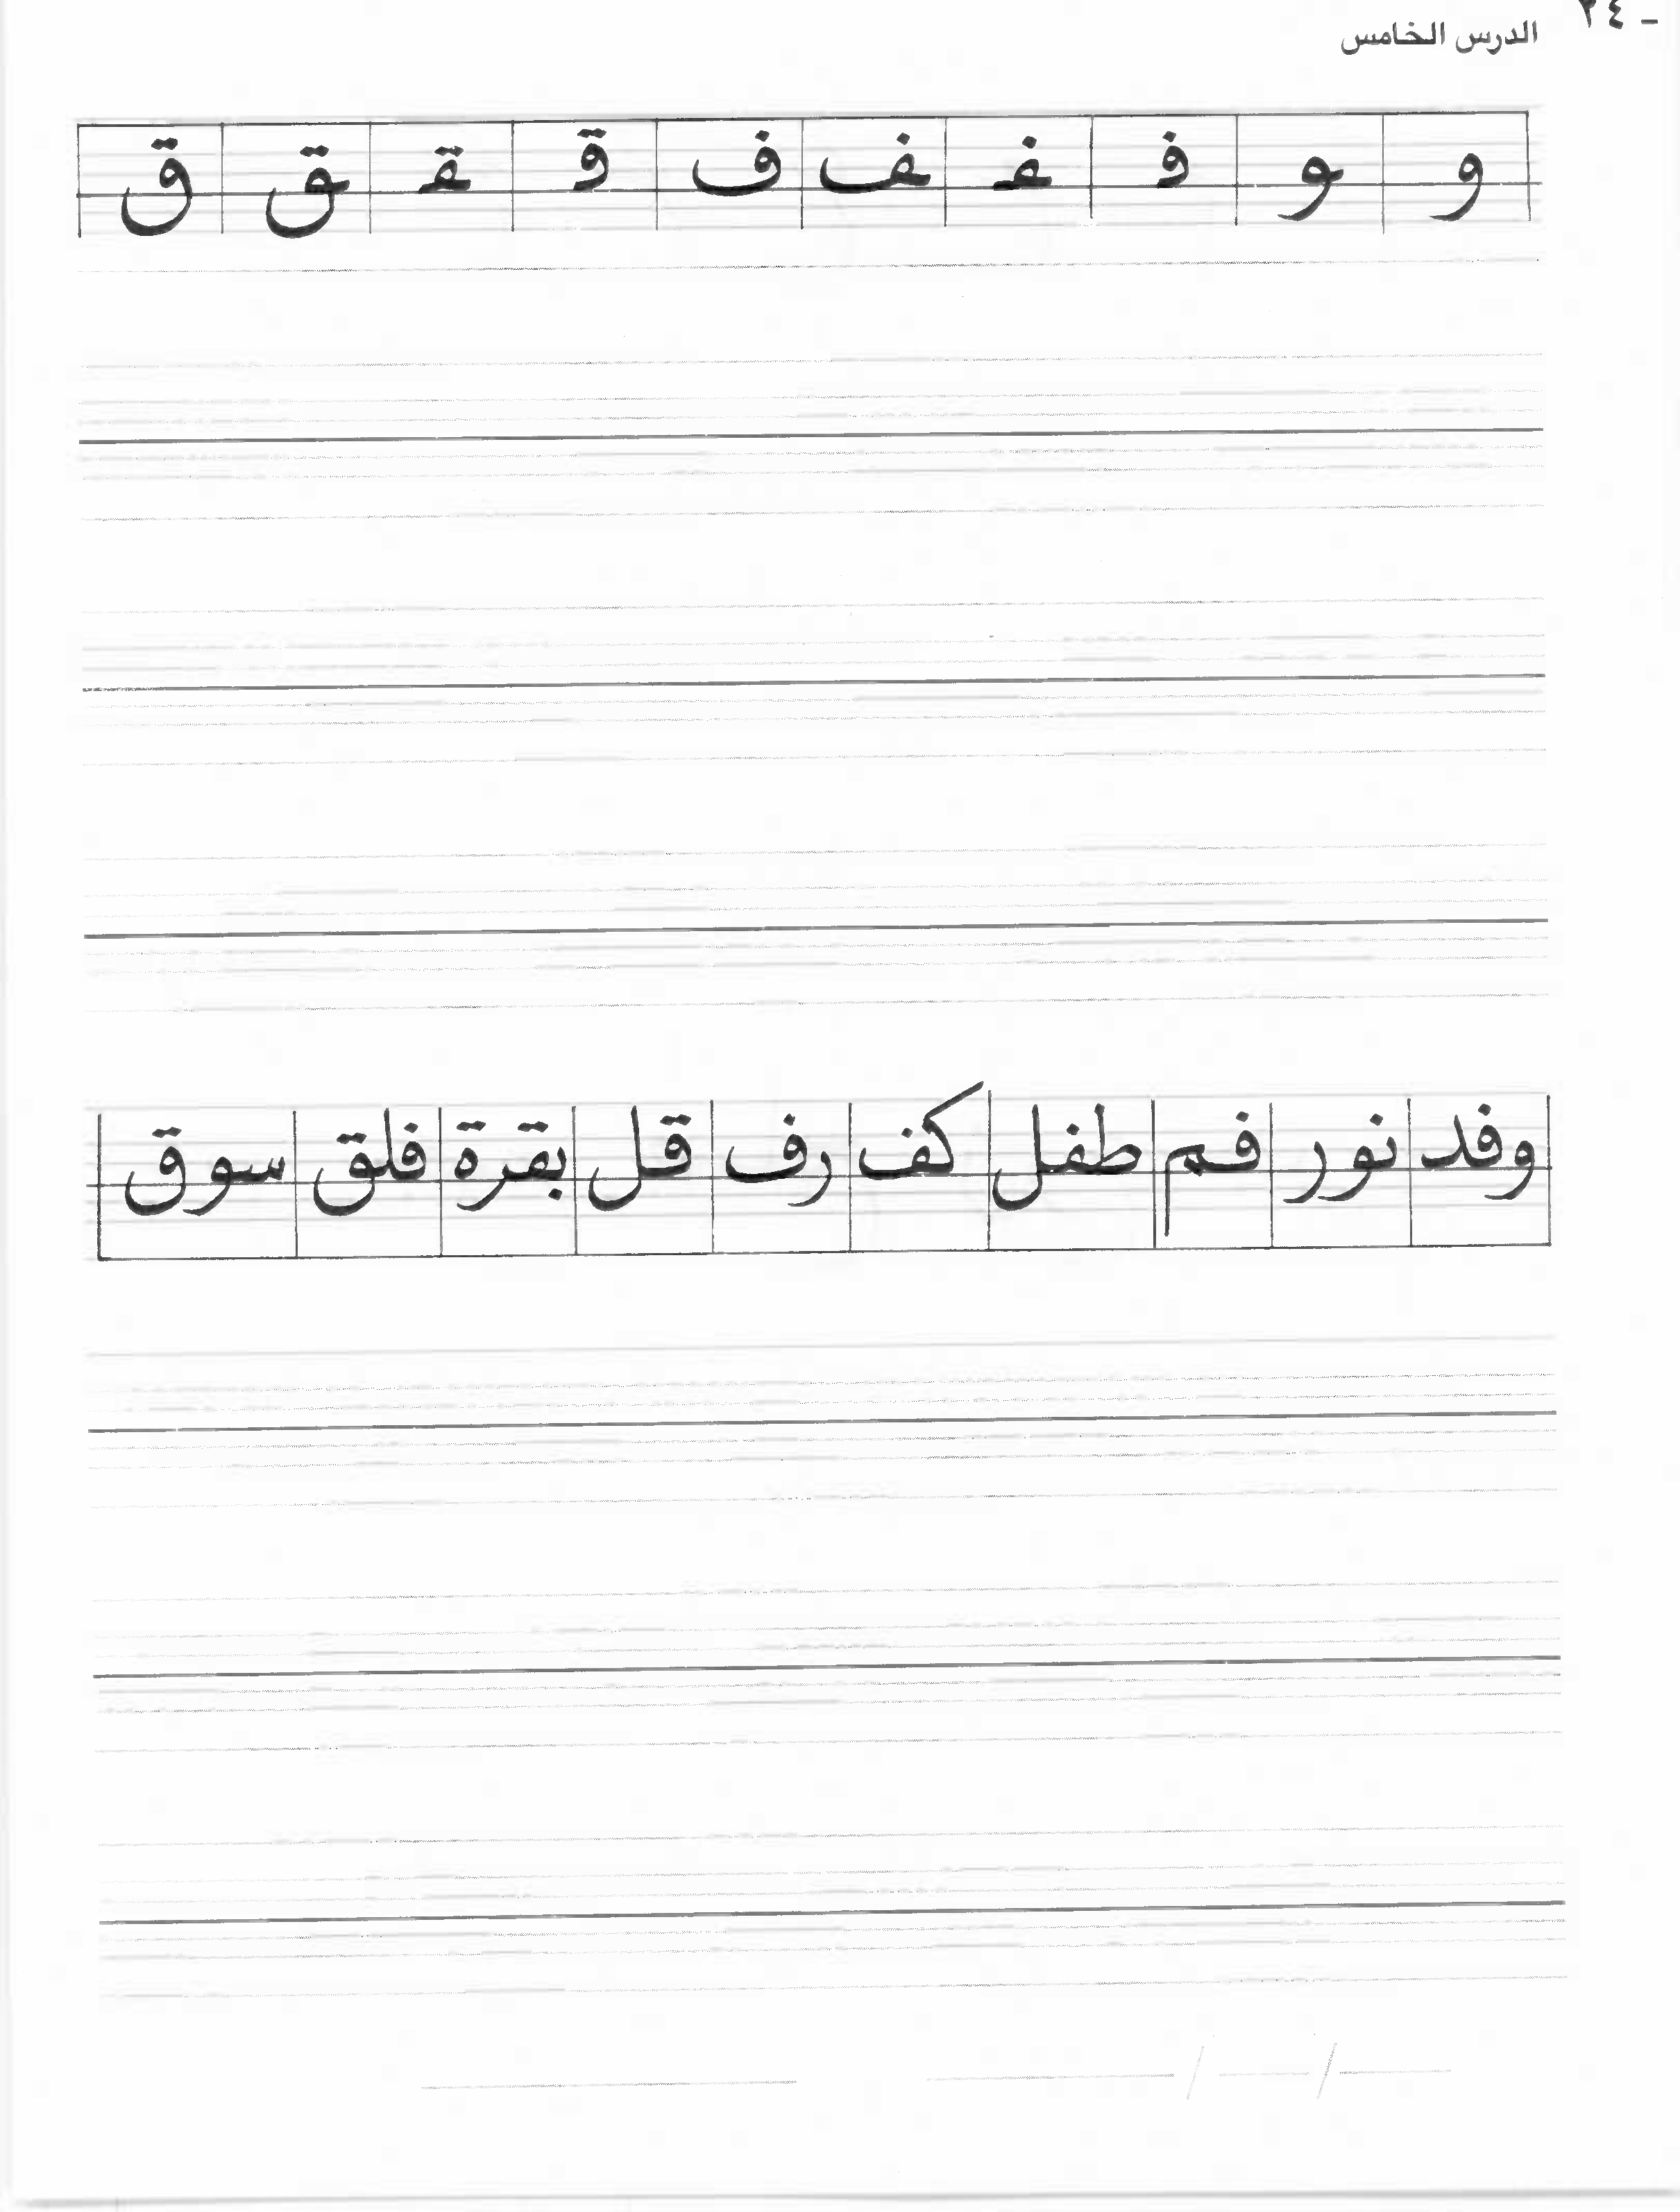 ٢٤ -
الدرس الخامس
و ـو فـ ـفـ ـف ف قـ ـقـ ـق ق
وفد نور فم طفل كف رف قل بقرة فلق سوق